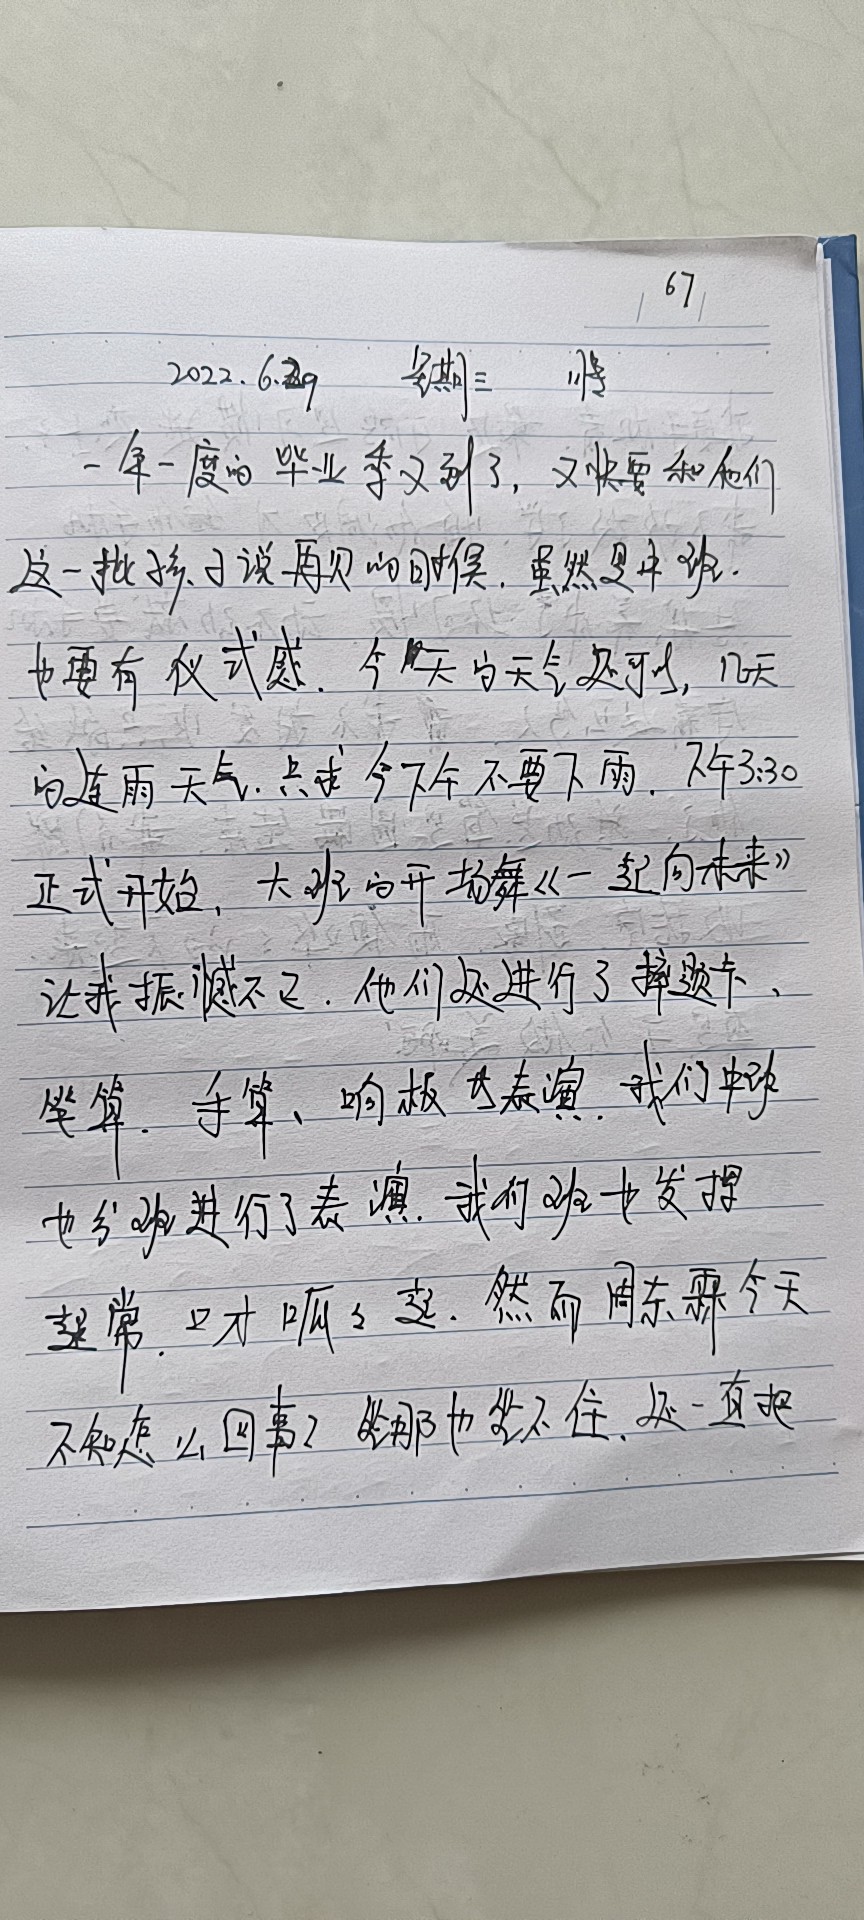 67
2022.6.29 星期三 晴
一年一度的毕业季又到了,又快要和他们
这一批孩子说再见的时候.虽然是中班.
也要有仪式感.今天的天气还可以,几天
的连雨天气.只求今下午不要下雨.下午3:30
正式开始,大班的开场舞《一起向未来》
让我振憾不已.他们还进行了摔题卡、
笔算.手算、响板世表演.我们中班
也分班进行了表演.我们班也发挥
超常.口才呱々 .然而周东霖今天
不知怎么回事?坐那也坐不住.还一直把